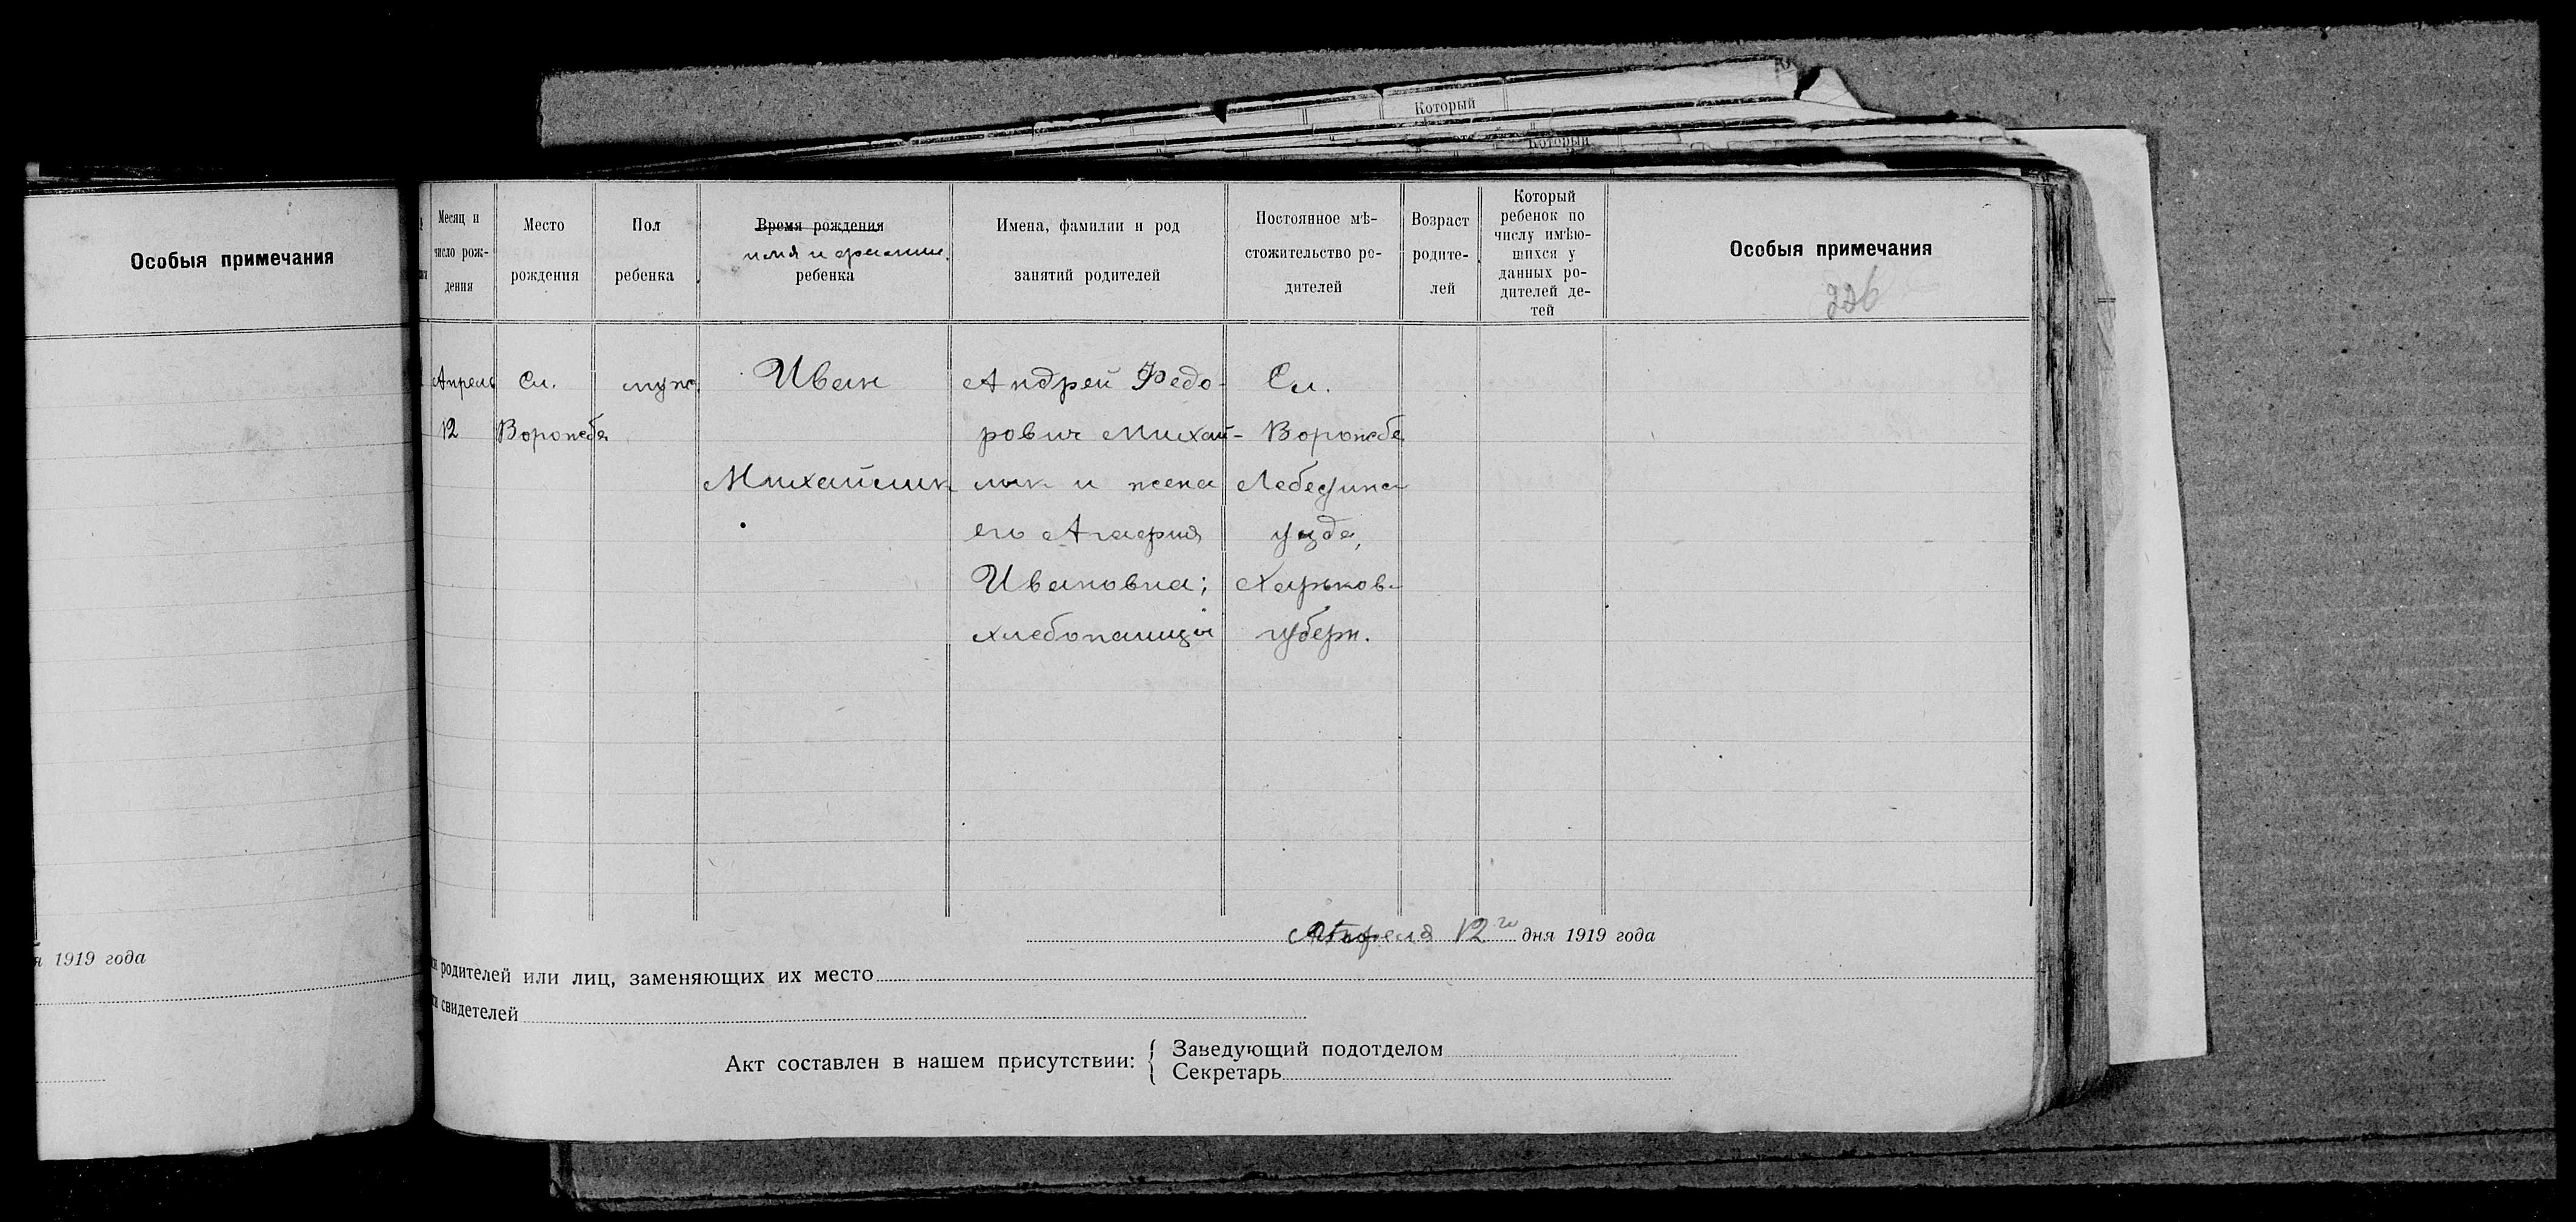 Который
Который
Особыя примечания
я 1919 года
Месяц и
число рож-
дения
Место
рождения
Пол
ребенка
Время рождения
имя и фамилия
ребенка
Имена, фамилии и род
занятий родителей
Постоянное мѣ-
стожительство ро-
дителей
Возраст
родите-
лей
Который
ребенок по
числу имѣю-
шихся у
данных ро-
дителей де-
тей
Особыя примечания
226
Апрель
12
Сл.
Ворожба
муж.
Иван
Михайлик
Андрей Федо-
рович Михай-
лик и жена
его Агафия
Ивановна;
хлебопашцы
Сл.
Ворожба
Лебедин-
узда,
Харьков-
губерн.
Апреля 12го дня 1919 года
родителей или лиц, заменяющих их место
свидетелей
Акт составлен в нашем присутствии:
Заведующий подотделом
Секретарь